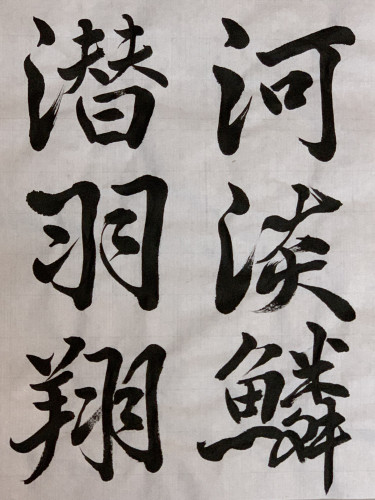 河淡鱗
潜羽翔